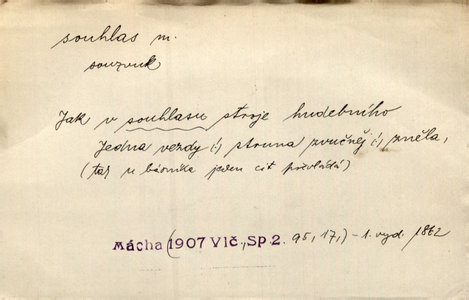 souhlas m.
souzvuk
Jak v souhlasu stroje hudebního
Jedna vezdy (:) struna zvučněj (:) zněla,
(tak u básníka jeden cit převládá)
Mácha (1907 Vlč., Sp. 2. 95, 17,) – 1. vyd. 1862